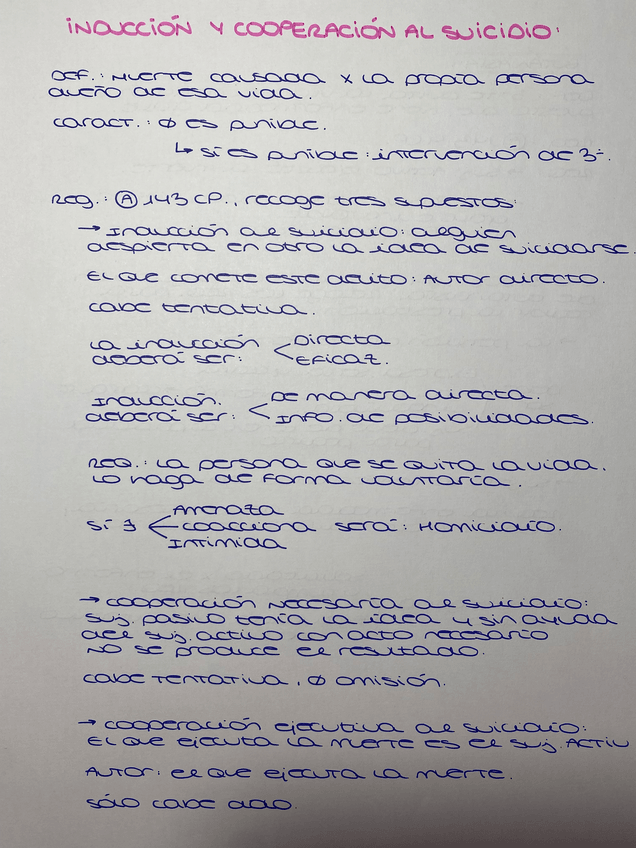 INDUCCIÓN Y COOPERACIÓN AL SUICIDIO:
DEF.: MUERTE CAUSADA X LA PROPIA PERSONA
DUEÑO DE ESA VIDA.
CARACT.: Ø ES PUNIBLE.
↳ SÍ ES PUNIBLE: INTERVENCIÓN DE 3º.
REG.: Ⓐ 143 CP., RECOGE TRES SUPUESTOS:
→ INDUCCIÓN AL SUICIDIO: ALGUIEN
DESPIERTA EN OTRO LA IDEA DE SUICIDARSE.
EL QUE COMETE ESTE DELITO: AUTOR DIRECTO.
CABE TENTATIVA.
LA INDUCCIÓN DIRECTA
DEBERÁ SER: < EFICAZ.
INDUCCIÓN. DE MANERA DIRECTA.
DEBERÁ SER: < INFO. DE POSIBILIDADES.
REQ.: LA PERSONA QUE SE QUITA LA VIDA.
LO HAGA DE FORMA VOLUNTARIA.
AMENAZA
SI 3 < COACCIONA SERÁ: HOMICIDIO.
INTIMIDA
→ COOPERACIÓN NECESARIA AL SUICIDIO:
SUJ. PASIVO TENÍA LA IDEA Y SIN AYUDA
DEL SUJ. ACTIVO CON ACTO NECESARIO
NO SE PRODUCE EL RESULTADO.
CABE TENTATIVA, Ø OMISIÓN.
→ COOPERACIÓN EJECUTIVA AL SUICIDIO:
EL QUE EJECUTA LA MERTE ES EL SUJ. ACTIV
AUTOR: EL QUE EJECUTA LA MERTE.
SÓLO CABE DOLO.